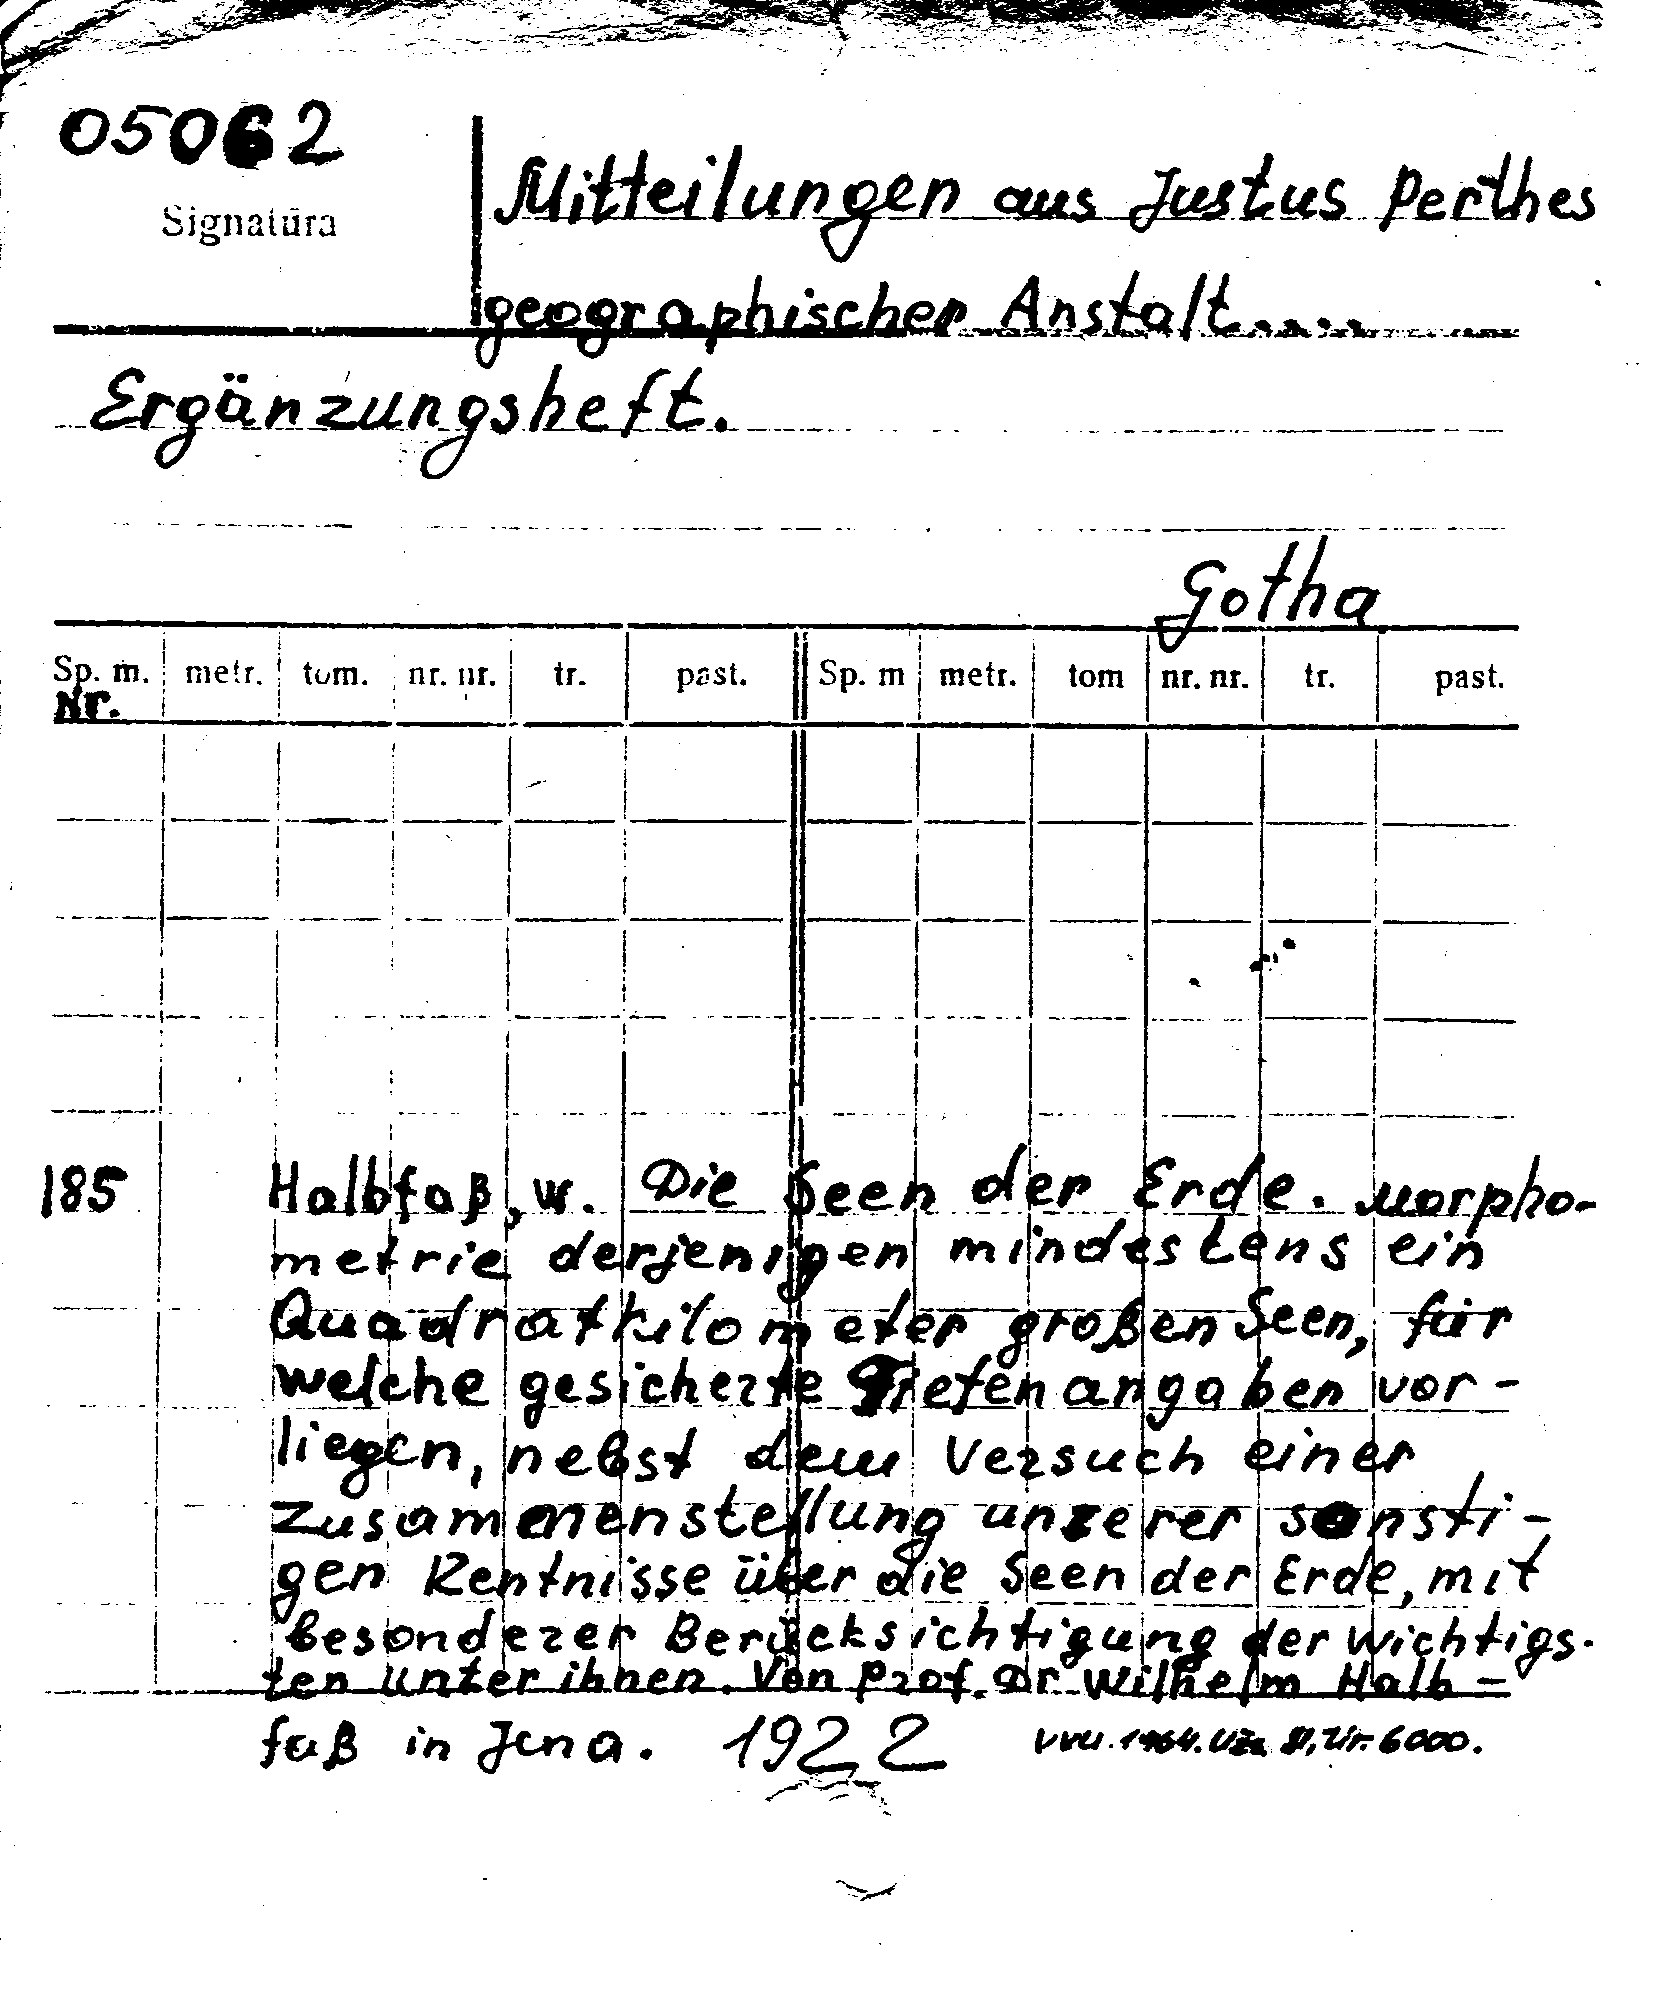 05062
Signatūra
Mitteilungen aus Justus Perthes
geographischer Anstalt....
Ergänzungsheft.
Gotha
Sp. m. metr. tom. nr. nr. tr. past. Sp. m metr. tom nr. nr. tr. past.
Nr.
185 Halbfaß, W. Die Seen der Erde. Morpho-
metrie derjenigen mindestens ein
Quadratkilometer großen Seen, für
welche gesicherte Tiefenangaben vor-
liegen, nebst dem Versuch einer
Zusammenstellung unserer sonsti-
gen Kentnisse über die Seen der Erde, mit
besonderer Berücksichtigung der wichtigs-
ten unter ihnen. Von Prof. Dr Wilhelm Halb-
faß in Jena. 1922
6000.